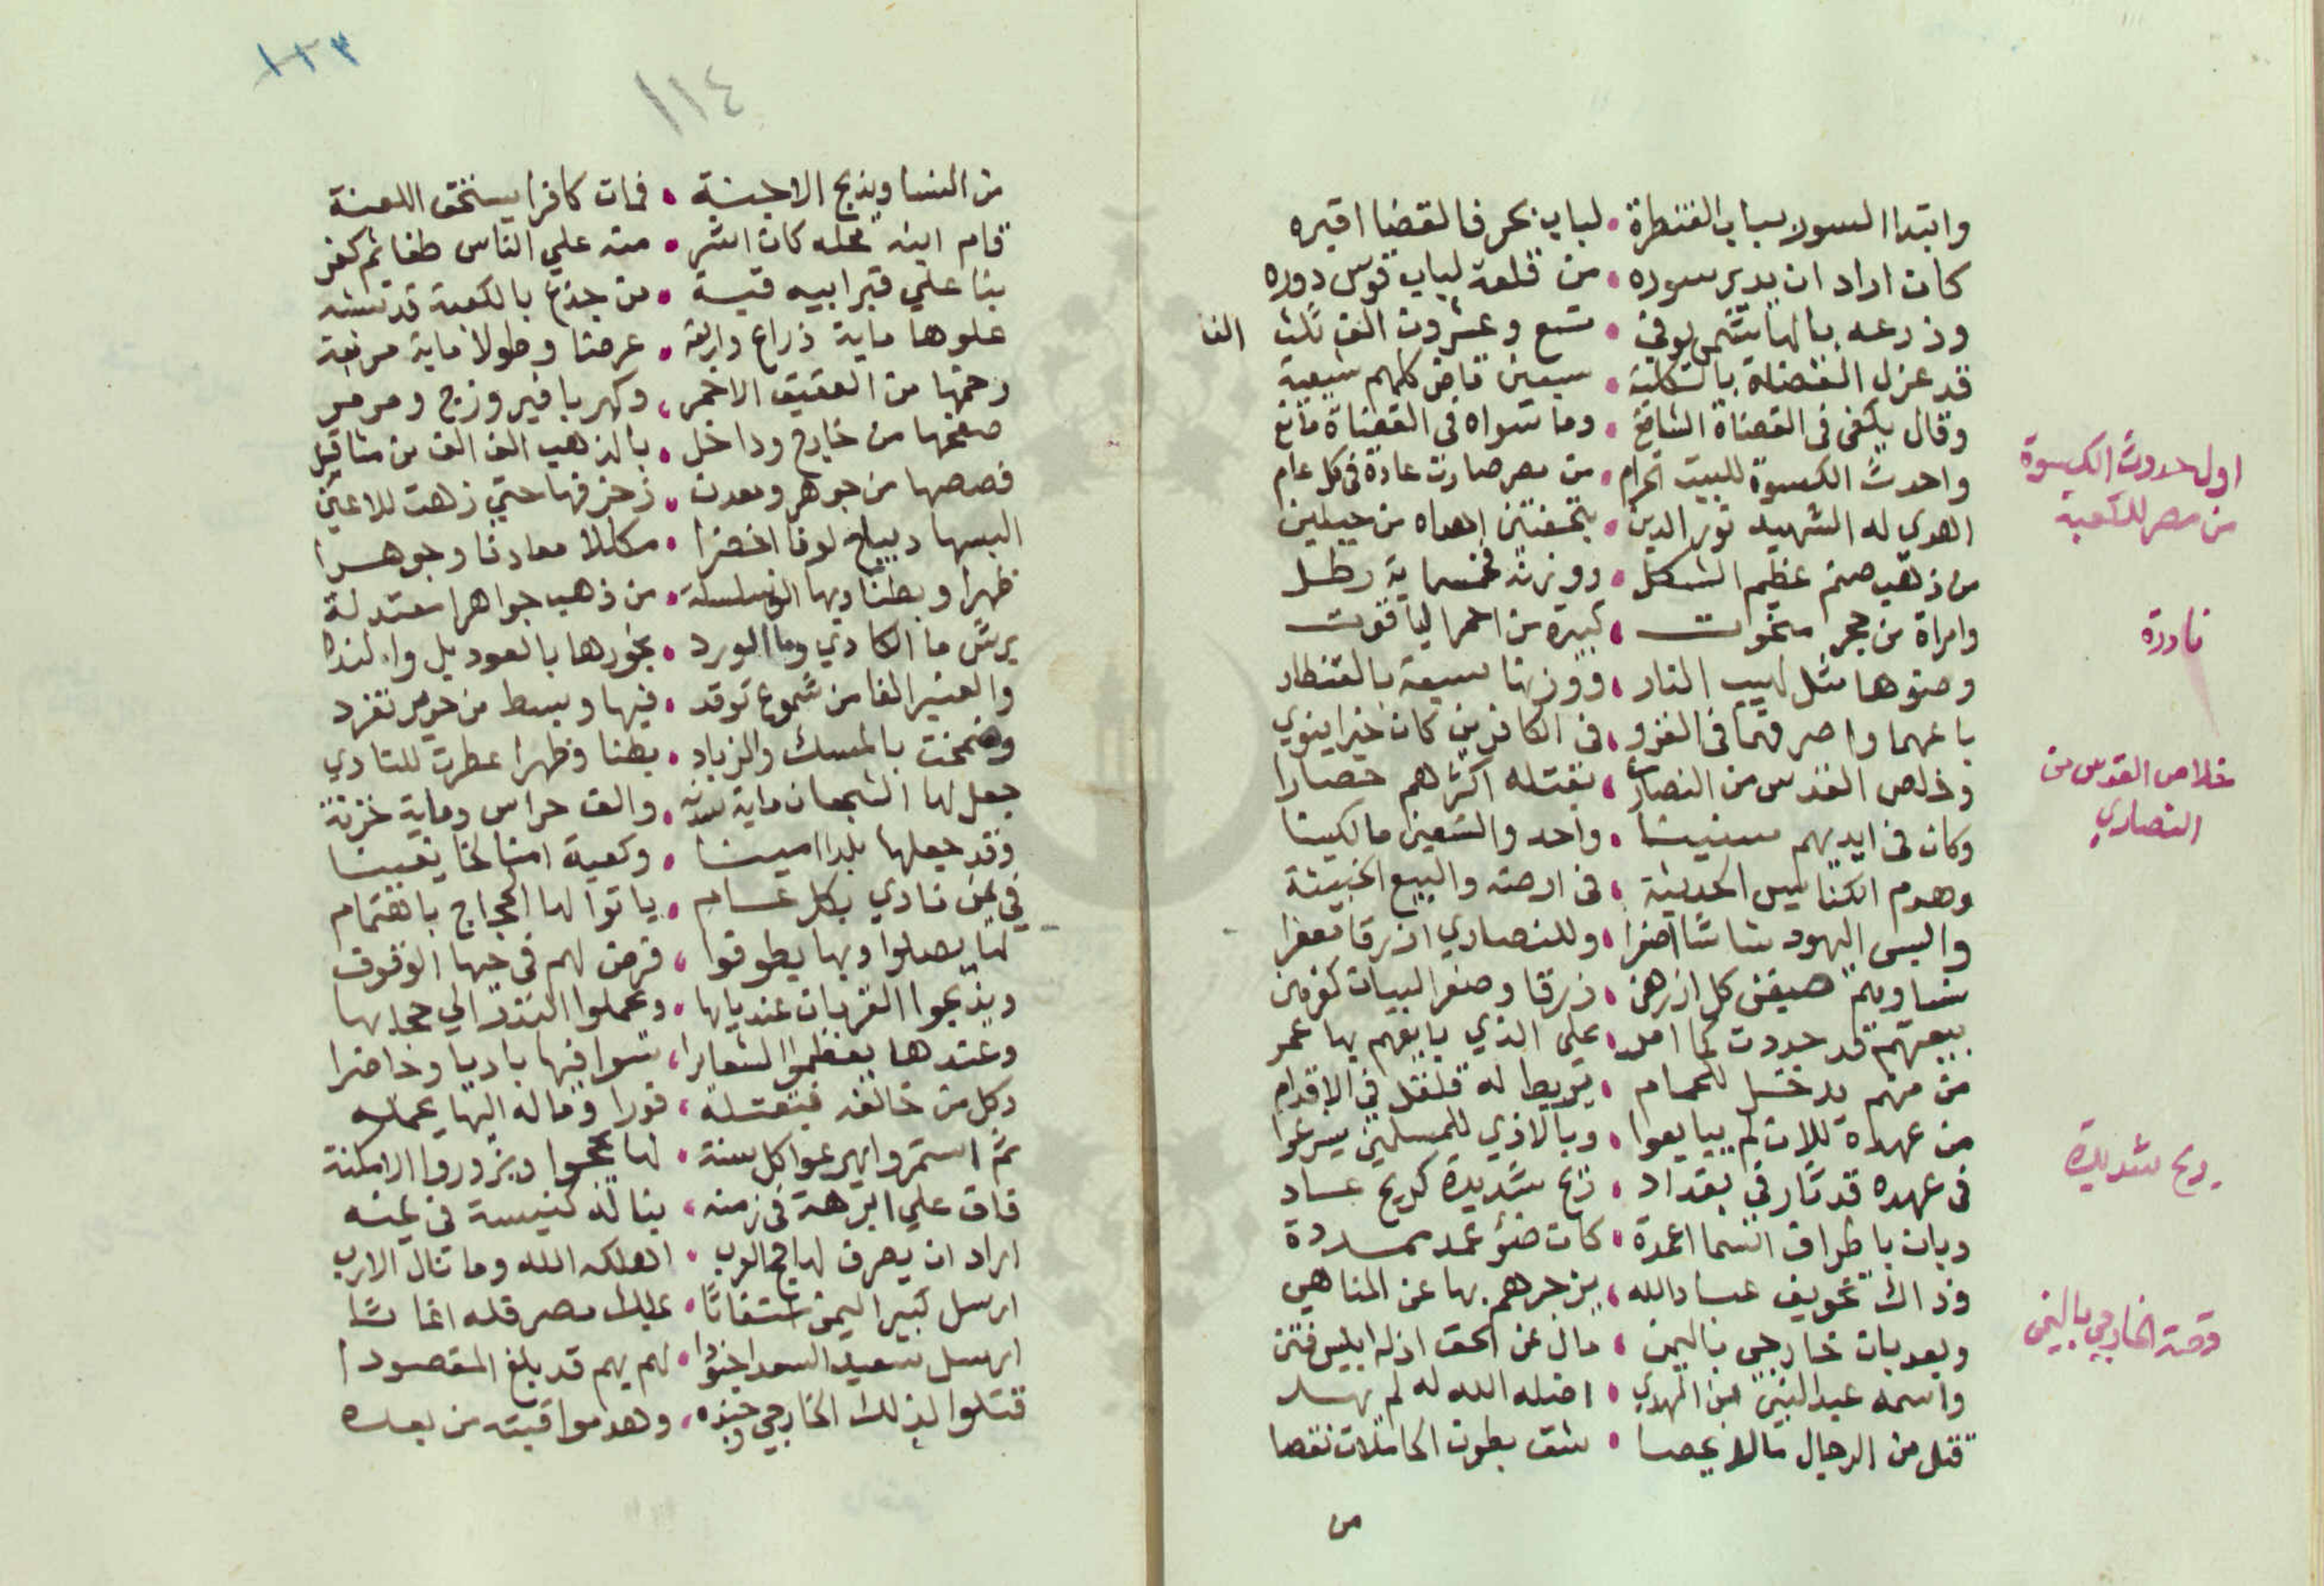 وابتدا السور بباب القنطرة • لباب بحر فالقضا اقبره
كان اراد ان يدير سوره • من قلعة لباب قوس دوره
وذرعه بالهاشمي يوفي • تسع وعشرون الف ثلث الفا
قد عزل القضاة بالكلية • سبعين قاض كلهم شيعية
وقال يكفي في القضاة الشافع • وما سواه في القضاة مانع
واحدث الكسوة للبيت الحرام • من مصر صارت عادة في كل عام
اول حدوث الكسوة
من مصر للكعبة
اهدي له الشهيد نور الدين • بتحفتين اهداه من
من ذهب صنم عظيم الشكل • ووزنه خمسماية رطل
وامراة من حجر منحوت • كبيرة من احمر الياقوت
نادرة
وضوها مثل لهيب النار • ووزنها سبعة بالقنطار
باعهما واصرفهما في الغزو • في الكافرين كان خيرا ينوي
وخلص القدس من النصارى • بقتله اكثرهم حصارا
خلاص القدس من
النصاري
وكان في ايديهم سنينا • واحد والتسعين مالكينا
وهدم الكنايس الحديثة • في ارضه والبيع الخبيثة
والبس اليهود شاشا اصفرا • وللنصاري ازرقا
كل ازرهن • زرقا وصفر
بيعتهم قد جددت كما امر • علي الذي بايعهم بها عمر
من منهم يدخل للحمام • يربط له في الاقدام
من عهده للان لم يبايعوا • وبالاذي للمسلمين يسرعوا
في عهده قد ثار في بغداد • ريح شديدة كريح عاد
ريح شديدة
وبان باطراف السما اعمدة • كان ضوء عمد ممددة
وذاك تخويف عباد الله • يزجرهم بها عن المناهي
وبعد بان خارجي باليمن • مال عن الحق اذله ابليس فتن
قصة الخارجي باليمن
واسمه عبد النبي ابن المهدي • اضله الله له لم يهد
قتل من الرجال مالا يحصا • شق بطون الحاملات نقصا
من
١٢٣
١١٤
من النسا ويذبح الاجنة • فمات كافرا يستحق اللعنة
قام ابنه محله كان اشر • منه علي الناس طغا ثم كفر
بنا علي قبر ابيه قبة • من جذع بالكعبة قد تشبه
علوها ماية ذراع وارتفعة • عرضا وطولا ماية مربعة
رخمها من العقيق الاحمر • وكهربا فيروزج ومرمر
صفحها من خارج وداخل • بالذهب الف الف من مثاقيل
فصصها من جوهر ومعدن • زخرفها حتي زهت للاعين
البسها ديباج لونا اخضرا • مكللا معادنا وجوهرا
ظهرا وبطنا وبها • من ذهب جواهرا معتدلة
يرش ما الكادي وما الورد • بخورها بالعود بل والند
والعنبر الفا من شموع توقد • فيها وبسط من حرير تفرد
وضمخت بالمسك والزباد • بطنا وظهرا عطرت للنادي
جعل لها الشمعدان ماية سدنة • والف حراس وماية خزنة
وقد جعلها بلدا امينا • وكعبة
في نادي بكل عام • ياتوا لها الحجاج باهتمام
لها يصلوا وبها يطوفوا • فرض لهم في حبها الوقوف
ويذبحوا القربان عند بابها • ويحملوا النذر الي حجابها
وعندها يعظموا الشعايرا • سوا فيها باديا وحاضرا
وكل من خالفه فيقتله • فورا وماله اليها يحمله
ثم استمروا يهرعوا كل سنة • لها يحجوا ويزوروا الامكنة
فاق علي ابرهة في زمنه • بنا له كنيسة في يمنه
اراد ان يصرف لها حج العرب • اهلكه الله وما نال الارب
ارسل كبير اليمن استغاثا • بملك مصر قله اغاثا
ارسل سعيد السعدا جنودا • لهم بهم قد بلغ المقصودا
قتلوا لذلك الخارجي وجنده • وهدموا قبته من بعده